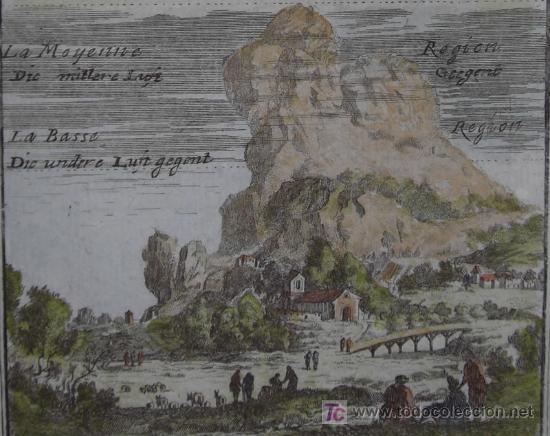 La Moyenne Region
Die mittere Luft Gegent
La Basse Region
Die undere Luft gegent
TC www.todocoleccion.net